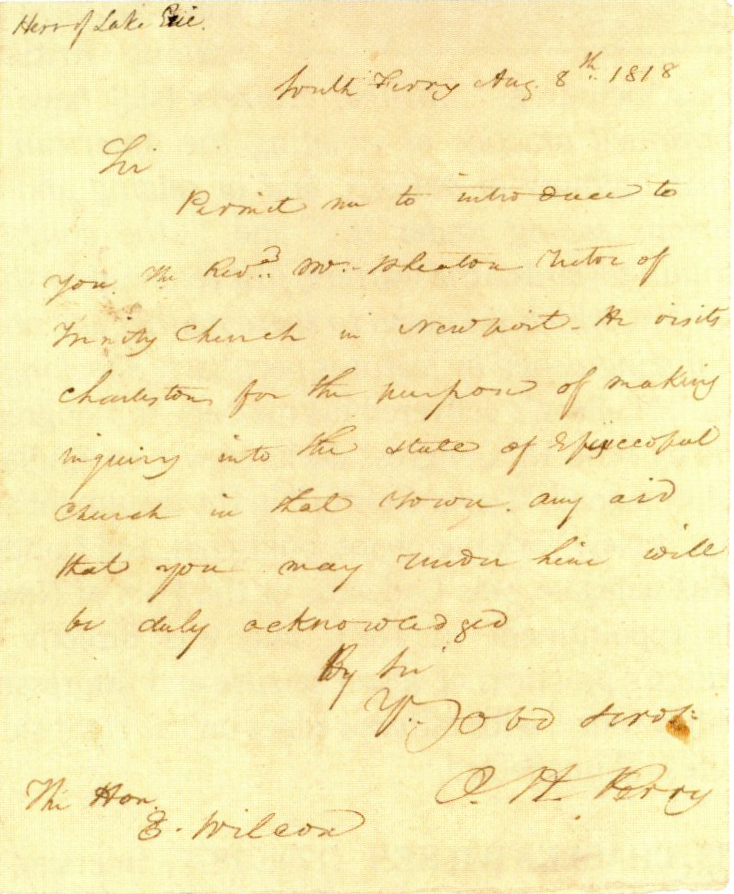 Hero of Lake Erie.
South Ferry Aug. 8th. 1818
Sir
Permit me to introduce to
you the Revd. Mr. Wheaton Rector of
Trinity Church in Newport. He visits
Charleston for the purpose of making
inquiry into the state of Episcopal
Church in that Town. any aid
that you may render him will
be duly acknowledged
By Sir
Yr. Obd servt.
O. H. Perry
The Hon.
E. Wilcox